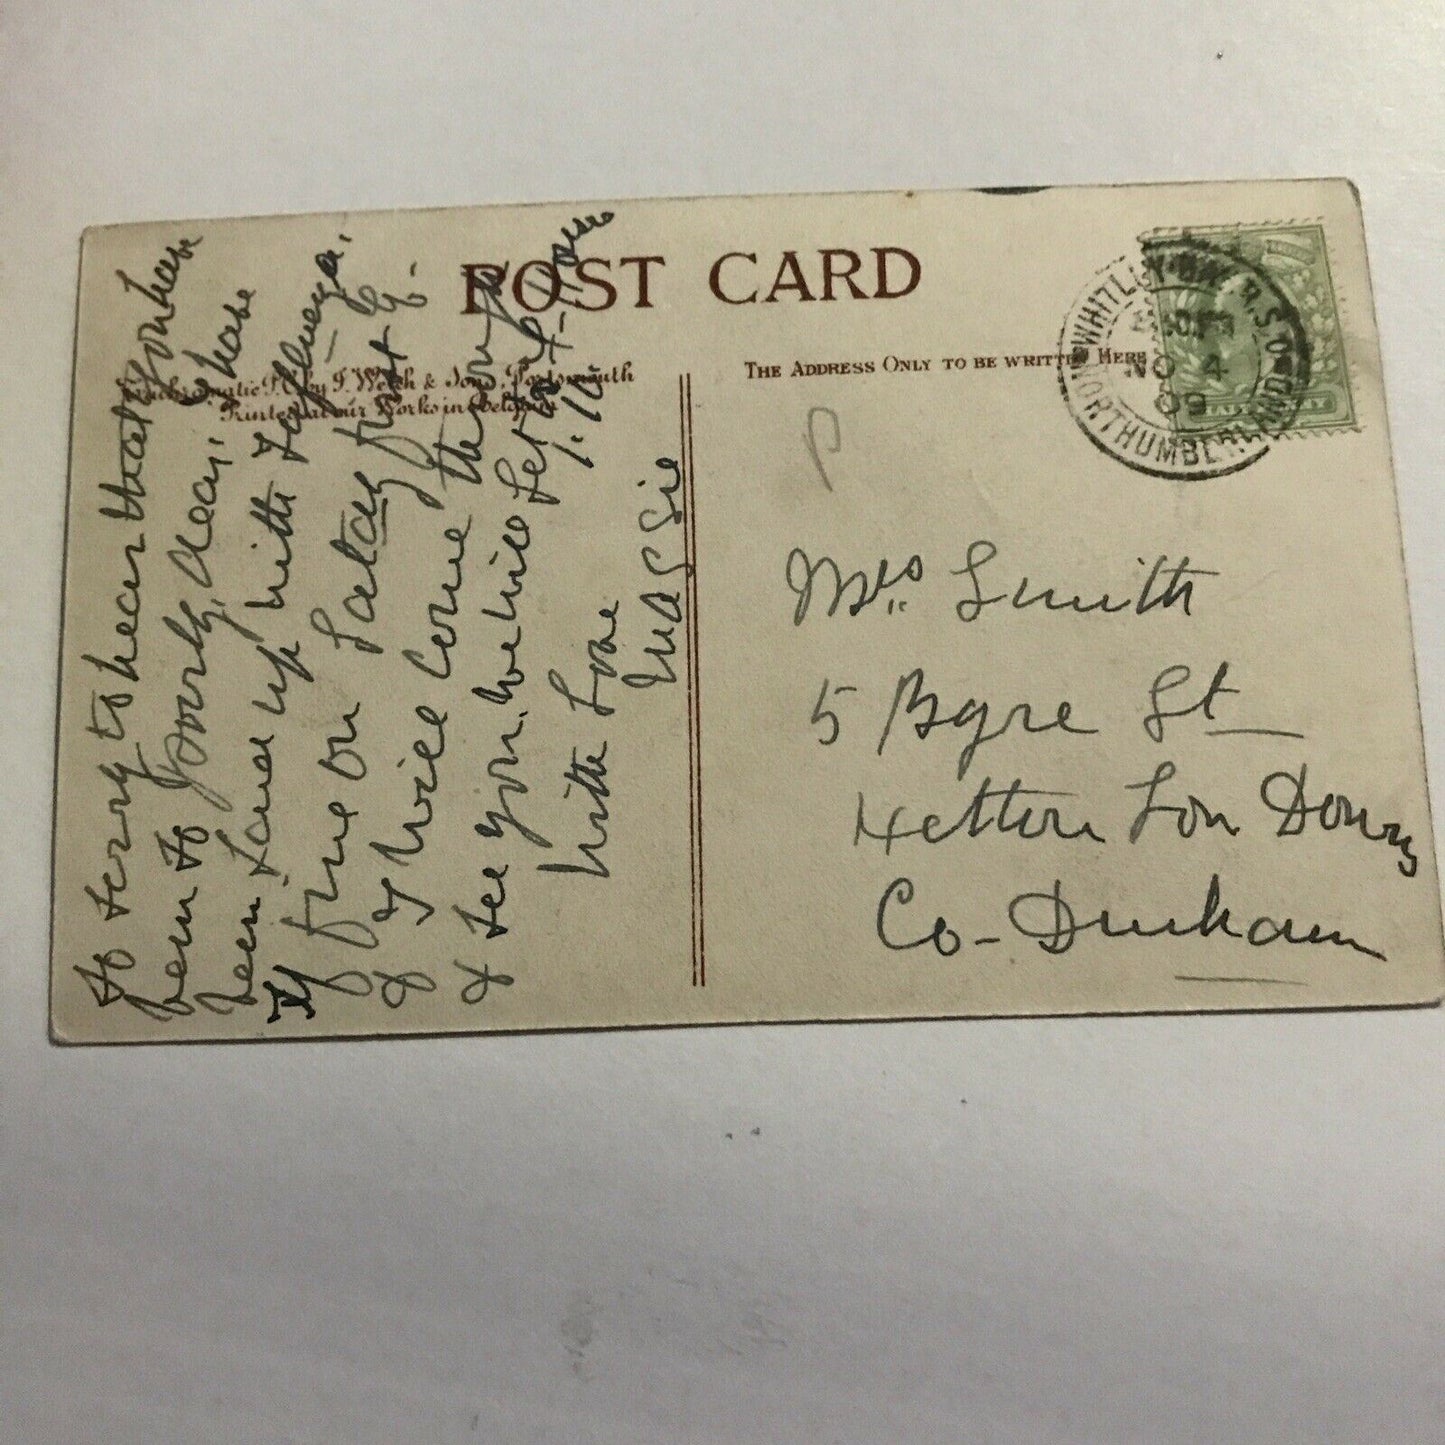 POST CARD
Photochromatic P.C. by J. Welch & Sons, Portsmouth
Printed at our Works in Belgium
THE ADDRESS ONLY TO BE WRITTEN HERE
WHITLEY-BAY R.S.O.
NO 4
09
NORTHUMBERLAND
Mrs. Smith
5 Byre St
Hetton Lon Downs
Co- Durham
So sorry to hear that you have
been so poorly, dear, I have
been laid up with
If fine on Satay
& I will come through
& see you. We will get at
With Love
Massie